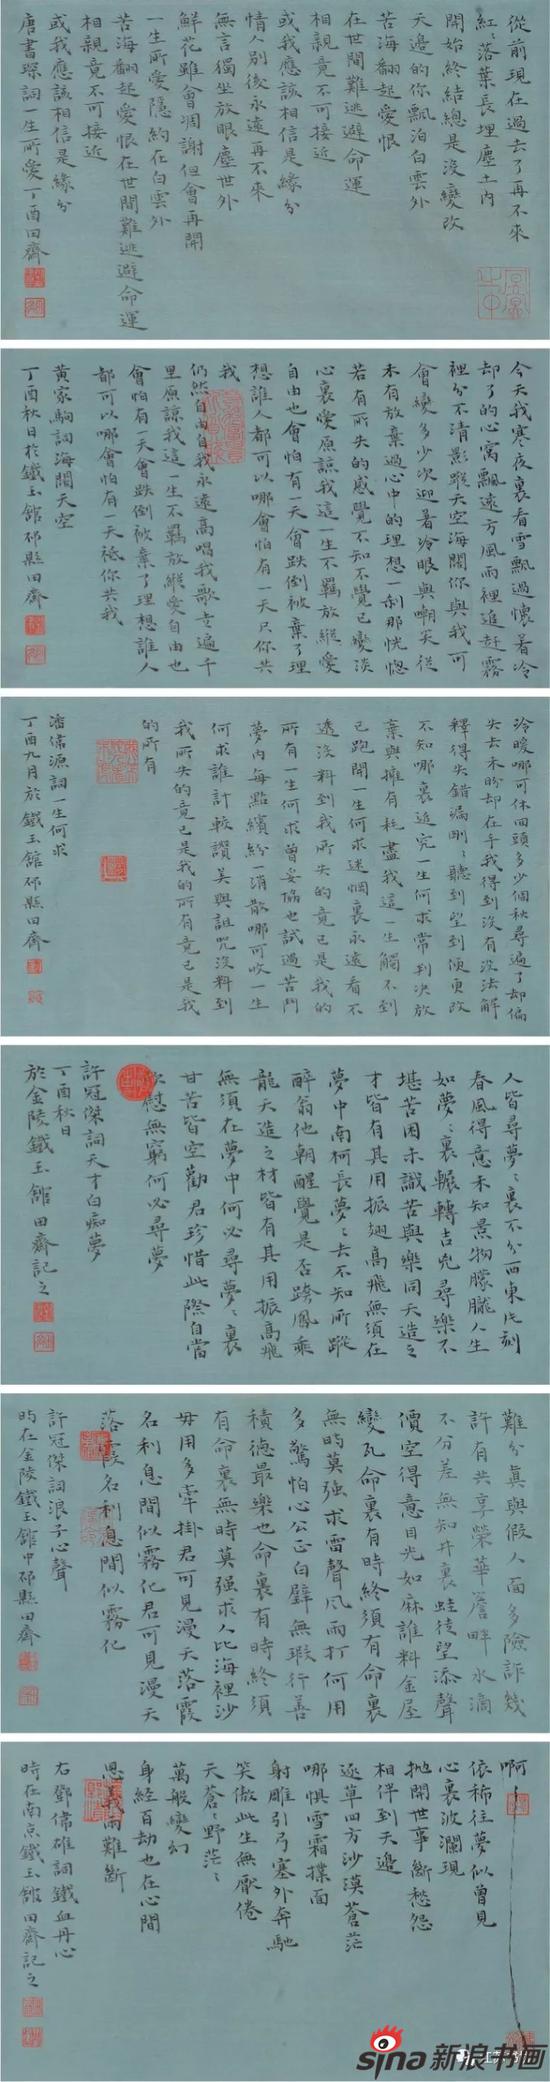 從前現在過去了再不來
紅紅落葉長埋塵土內
開始終結總是沒變改
天邊的你飄泊白雲外
苦海翻起愛恨
在世間難逃避命運
相親竟不可接近
或我應該相信是緣分
情人別後永遠再不來
無言獨坐放眼塵世外
鮮花雖會凋謝但會再開
一生所愛隱約在白雲外
苦海翻起愛恨在世間難逃避命運
相親竟不可接近
或我應該相信是緣分
唐書琛詞一生所愛丁酉田齋
今天我寒夜裏看雪飄過懷着冷
却了的心窩飄遠方風雨裡追赶霧
裡分不清影蹤天空海闊你與我可
會變多少次迎着冷眼與嘲笑從
未有放棄過心中的理想一刹那恍惚
若有所失的感覺不知不覺已變淡
心裏愛原諒我這一生不羈放縱愛
自由也會怕有一天會跌倒被棄了理
想誰人都可以哪會怕有一天只你共
我
仍然自由自我永遠高唱我歌走遍千
里原諒我這一生不羈放縱愛自由也
會怕有一天會跌倒被棄了理想誰人
都可以哪會怕有一天祗你共我
黃家駒詞海闊天空
丁酉秋日於鐵玉館邳縣田齋
冷暖哪可休回頭多少個秋尋遍了却偏
失去未盼却在手我得到沒有沒法解
釋得失錯漏剛剛聽到望到便更改
不知哪裏追究一生何求常判決放
棄與擁有耗盡我這一生觸不到
已跑開一生何求迷惘裏永遠看不
透沒料到我所失的竟已是我的
所有一生何求曾妥協也試過苦鬥
夢內每點繽紛一消散哪可收一生
何求誰計較讚美與詛咒沒料到
我所失的竟已是我的所有竟已是我
的所有
潘偉源詞一生何求
丁酉九月於鐵玉館邳縣田齋
人皆尋夢夢裏不分西東片刻
春風得意未知景物朦朧人生
如夢夢裏輾轉吉兇尋樂不
堪苦困未識苦與樂同天造之
才皆有其用振翅高飛無須在
夢中南柯長夢夢去不知所蹤
醉翁他朝醒覺是否跨鳳乘
龍天造之材皆有其用振高飛
無須在夢中何必尋夢夢裏
甘苦皆空勸君珍惜此際自當
欣慰無窮何必尋夢
許冠傑詞天才白痴夢
丁酉秋日
於金陵鐵玉館田齋記之
難分真與假人面多險詐幾
許有共享榮華簷畔水滴
不分差無知井裏蛙徒望添聲
價空得意目光如麻誰料金屋
變瓦命裏有時終須有命裏
無時莫强求雷聲風雨打何用
多驚怕心公正白璧無瑕行善
積德最樂也命裏有時終須
有命裏無時莫强求人比海裡沙
毋用多牽掛君可見漫天落霞
名利息間似霧化君可見漫天
落霞名利息間似霧化
許冠傑詞浪子心聲
時在金陵鐵玉館中邳縣田齋
啊
依稀往夢似曾見
心裏波瀾現
拋開世事斷愁怨
相伴到天邊
逐草四方沙漠蒼茫
哪懼雪霜撲面
射雕引弓塞外奔馳
笑傲此生無厭倦
天蒼蒼野茫茫
萬般變幻
身經百劫也在心間
恩義兩難斷
右鄧偉雄詞鐵血丹心
時在南京鐵玉館田齋記之
sina新浪书画